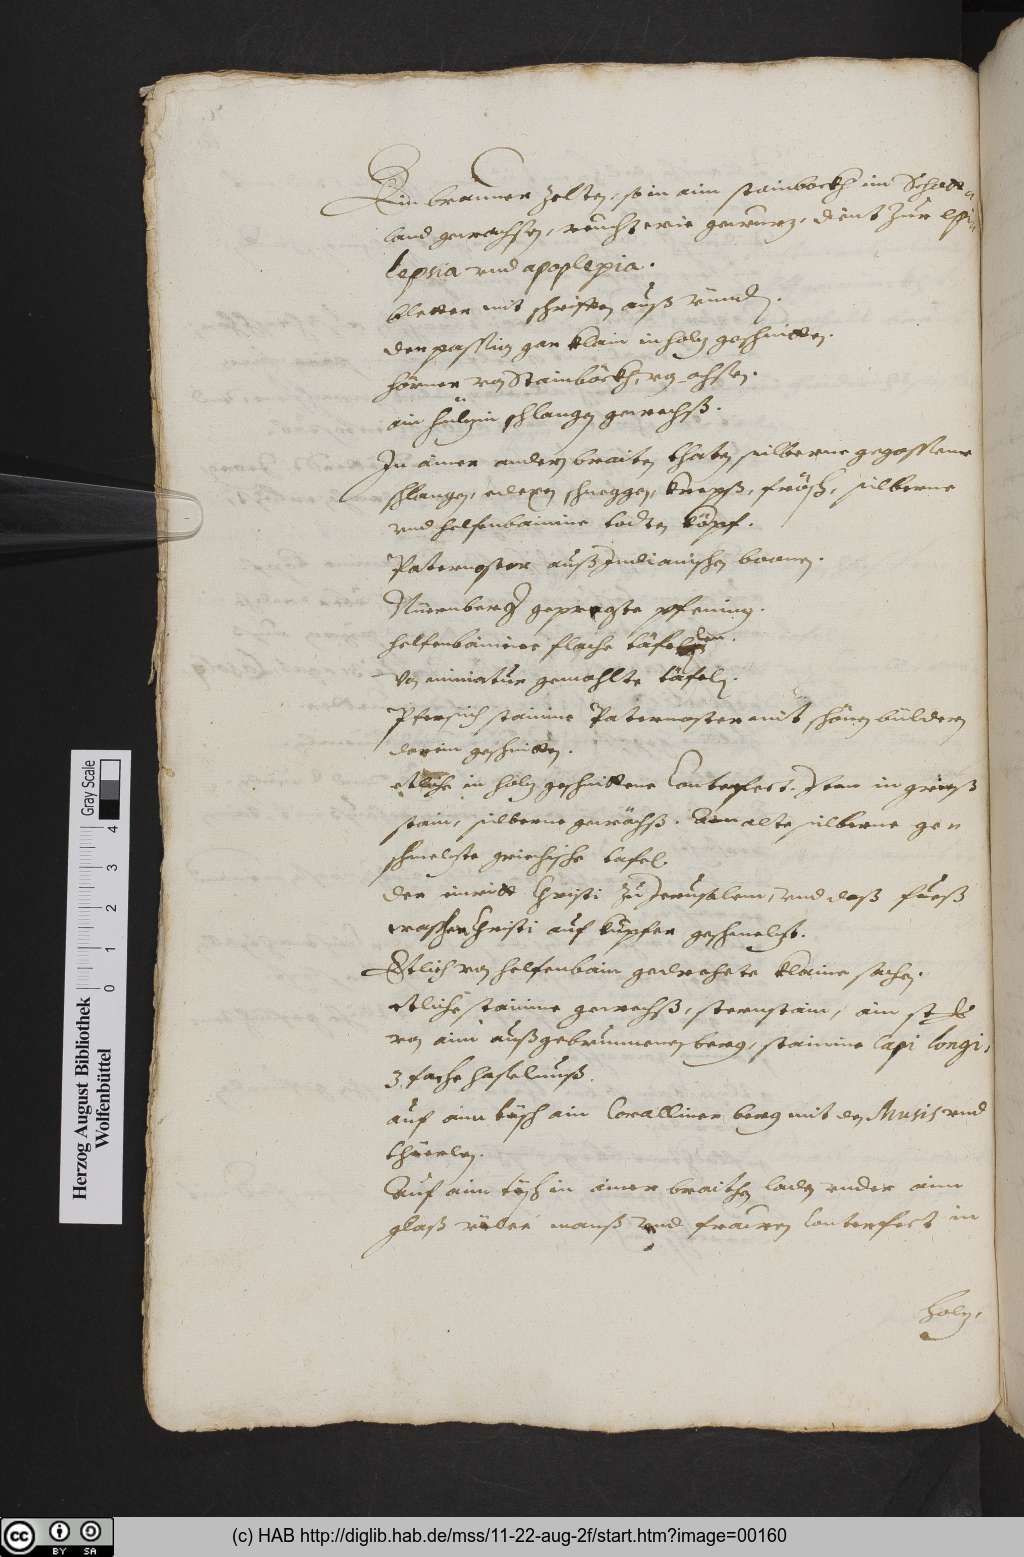 Ein brauner zelten, so in aim stainbockh im Schwei
land gewachsen, reucht wie gewurz, dient zur epi
lepsia vnd apoplexia.
bletter mit schrifften auß
der passion gar klain in holz geschnitten.
hörner von Stainböckh, vr ochsen.
ain hülzin schlangen gewechß.
In ainer andern braiten silberne gegossene
schlangen, edexen schneggen, krepß, frösch, silberne
vnd helfenbainine todten köpf.
Paternoster auß Indianischen bonen.
Nürenberg gepregte pfening.
helfenbainine flache täfelen.
Von miniatur gemahlte täfelen.
Pfersich stainine Paternoster mit schönen bilderen
darein geschnitten.
etliche in holz geschnittene Conterfect. Item in
stain, silberne gewächß. Ain alte silberne ge
schmelzte griechische tafel.
der einritt Christi zu Jerusalem, vnd daß fueß
waschen Christi auf kupfer geschmelzt.
Etlich von helfenbain gedrehete klaine sachen.
etliche stainine gewechß, sternstain, ain st.
von aim außgebrunnenen berg, stainine lapi longi,
3 fache haselnuß.
auf aim tisch ain Corallinen berg mit den Musis vnd
thierlen.
Auf aim tisch in ainer braiten laden vnder aim
glaß manß vnd frawen Conterfect in
holz,
Herzog August Bibliothek
Wolfenbüttel
0 1 2 3 4
Gray Scale
cc BY SA
(c) HAB http://diglib.hab.de/mss/11-22-aug-2f/start.htm?image=00160